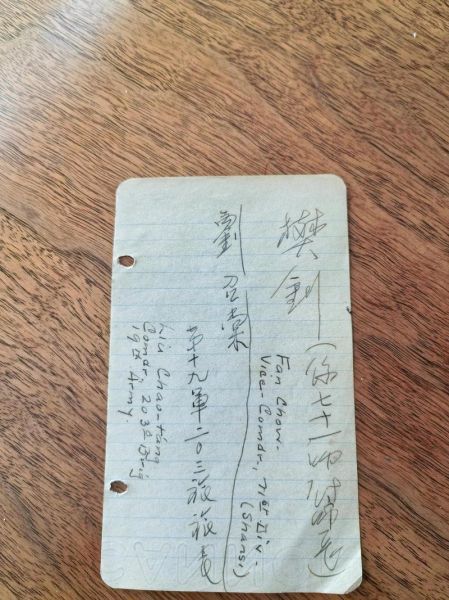 樊釗(係七十一师
Fan Chow.
Vice-Comdr., 71st Div.
(Shansi)
劉召棠
第十九軍二〇三旅旅長
Liu Chao-tang
Comdr, 203d Brig
19th Army